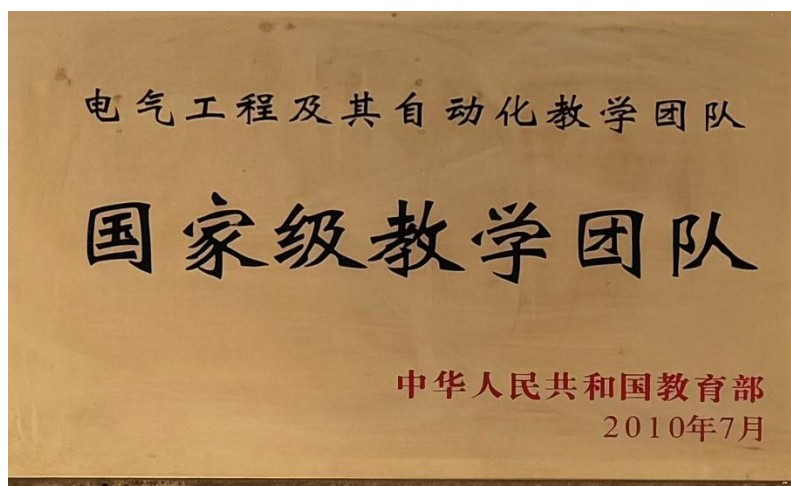 电气工程及其自动化教学团队
国家级教学团队
中华人民共和国教育部
2010年7月